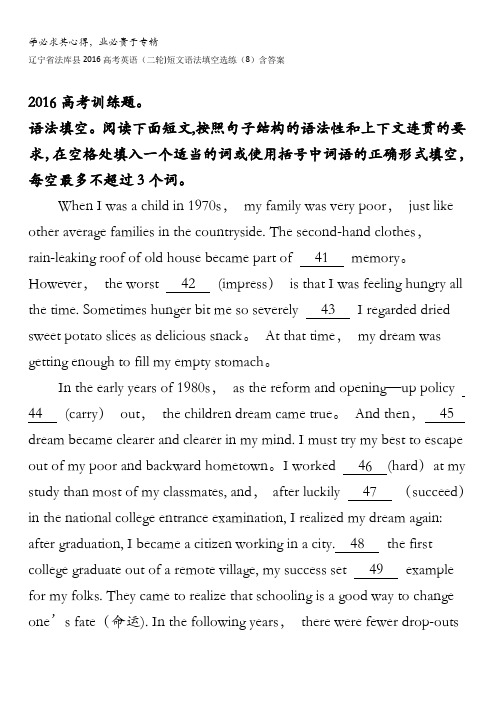 学必求其心得，业必贵于专精
辽宁省法库县2016高考英语（二轮)短文语法填空选练（8）含答案
2016高考训练题。
语法填空。阅读下面短文,按照句子结构的语法性和上下文连贯的要
求，在空格处填入一个适当的词或使用括号中词语的正确形式填空，
每空最多不超过3个词。
When I was a child in 1970s， my family was very poor， just like
other average families in the countryside. The second-hand clothes，
rain-leaking roof of old house became part of 41 memory。
However， the worst 42 (impress） is that I was feeling hungry all
the time. Sometimes hunger bit me so severely 43 I regarded dried
sweet potato slices as delicious snack。 At that time， my dream was
getting enough to fill my empty stomach。
In the early years of 1980s， as the reform and opening—up policy
44 (carry） out， the children dream came true。 And then， 45
dream became clearer and clearer in my mind. I must try my best to escape
out of my poor and backward hometown。I worked 46 (hard）at my
study than most of my classmates, and， after luckily 47 （succeed）
in the national college entrance examination, I realized my dream again:
after graduation, I became a citizen working in a city. 48 the first
college graduate out of a remote village, my success set 49 example
for my folks. They came to realize that schooling is a good way to change
one’s fate（命运). In the following years， there were fewer drop-outs